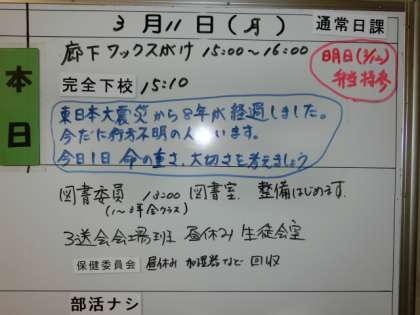 3月11日(月) 通常日課
本日
廊下ワックスがけ 15:00～16:00
明日(3/12)
弁当持参
完全下校 15:10
東日本大震災から8年が経過しました。
今だに行方不明の人もいます。
今日1日 命の重さ、大切さを考えましょう
図書委員 13:00 図書室 整備はじめます。
(1～3年全クラス)
3送会会場班 昼休み 生徒会室
保健委員会 昼休み 加湿器など 回収
部活ナシ